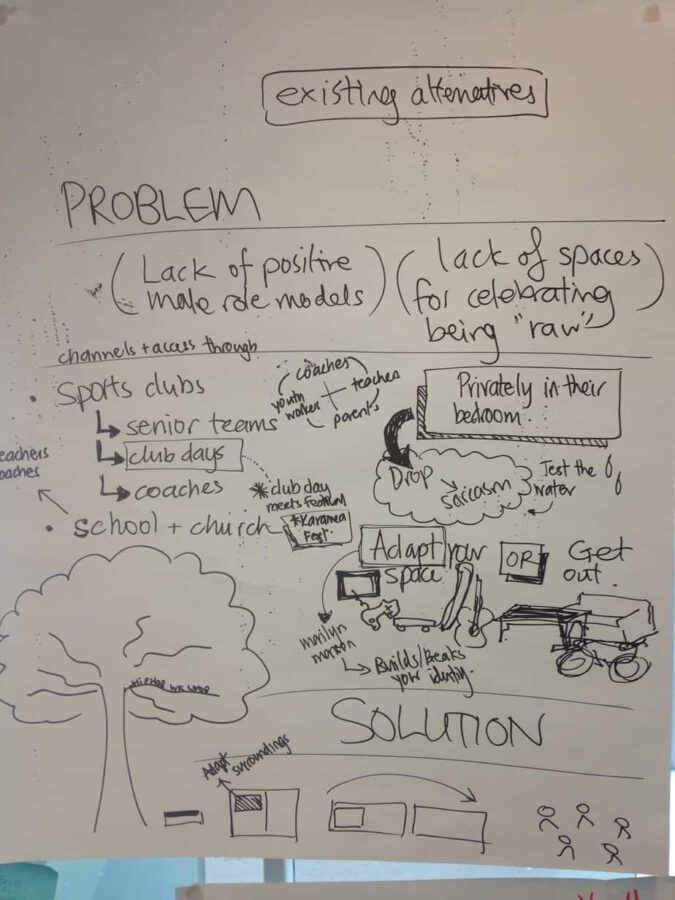 existing altenatives
PROBLEM
(Lack of positive
male role models)
(lack of spaces
for celebrating
being "raw")
channels + access through
• Sports clubs
senior teams
club days
coaches
• School + church
eachers
oaches
coaches
teaches
youth
worker
parents
*club day
meets Festival
*Karamea
Fest.
Privately in their
bedroom.
Drop
sarcasm
Test the
water
Adapt your
space
OR
Get
out.
marilyn
manson
Builds/Breaks
your identity.
SOLUTION
Adapt
surroundings